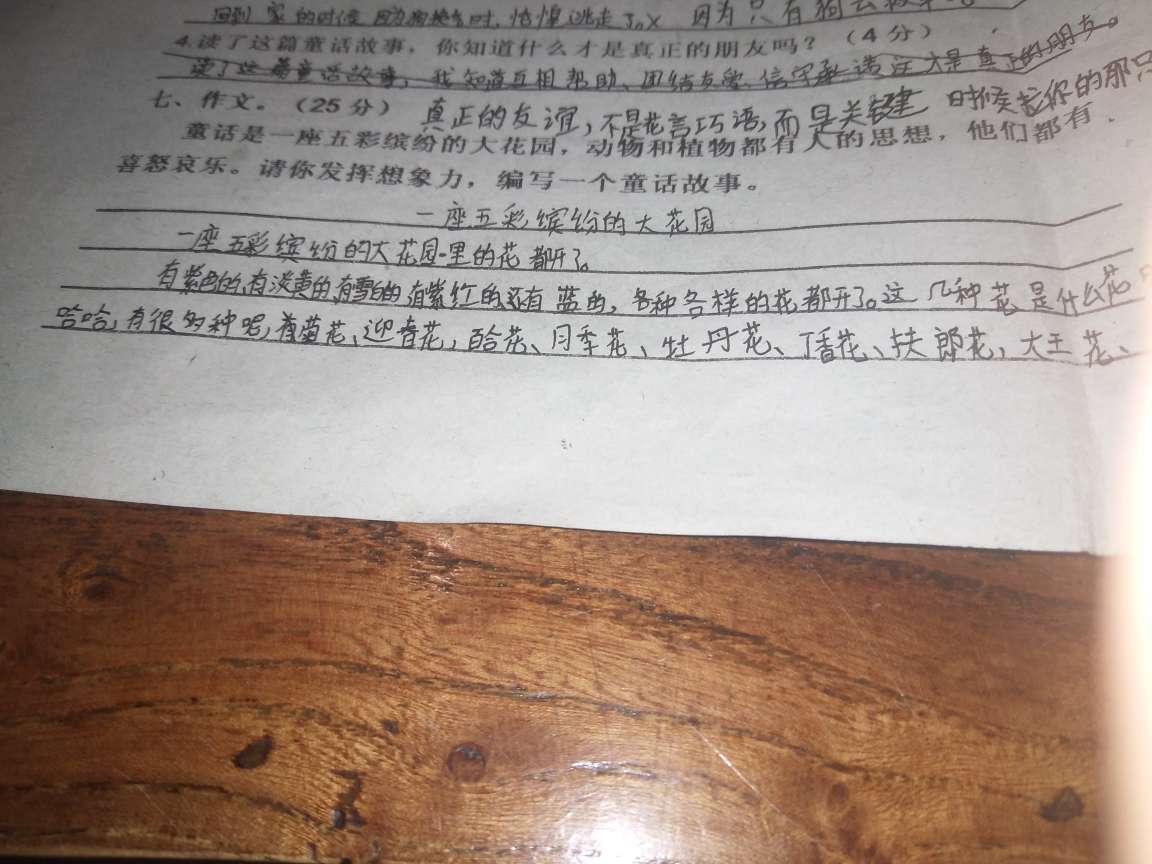 回到家的时候 时,惊惶逃走了。× 因为只有狗去
4.读了这篇童话故事,你知道什么才是真正的朋友吗?(4分)
读了这篇童话故事,我知道互相帮助、团结友爱、信守承诺 才是真正的朋友。
七、作文。(25分) 真正的友谊,不是花言巧语,而是关键时候 你的那只
童话是一座五彩缤纷的大花园,动物和植物都有人的思想,他们都有
喜怒哀乐。请你发挥想象力,编写一个童话故事。
一座五彩缤纷的大花园
一座五彩缤纷的大花园里的花都开了。
有紫色的,有淡黄的,有雪白的,有紫红的,还有蓝的,各种各样的花都开了。这几种花是什么花
哈哈,有很多种呢,有菊花、迎春花,百合花、月季花、牡丹花、丁香花、扶郎花,大王花、